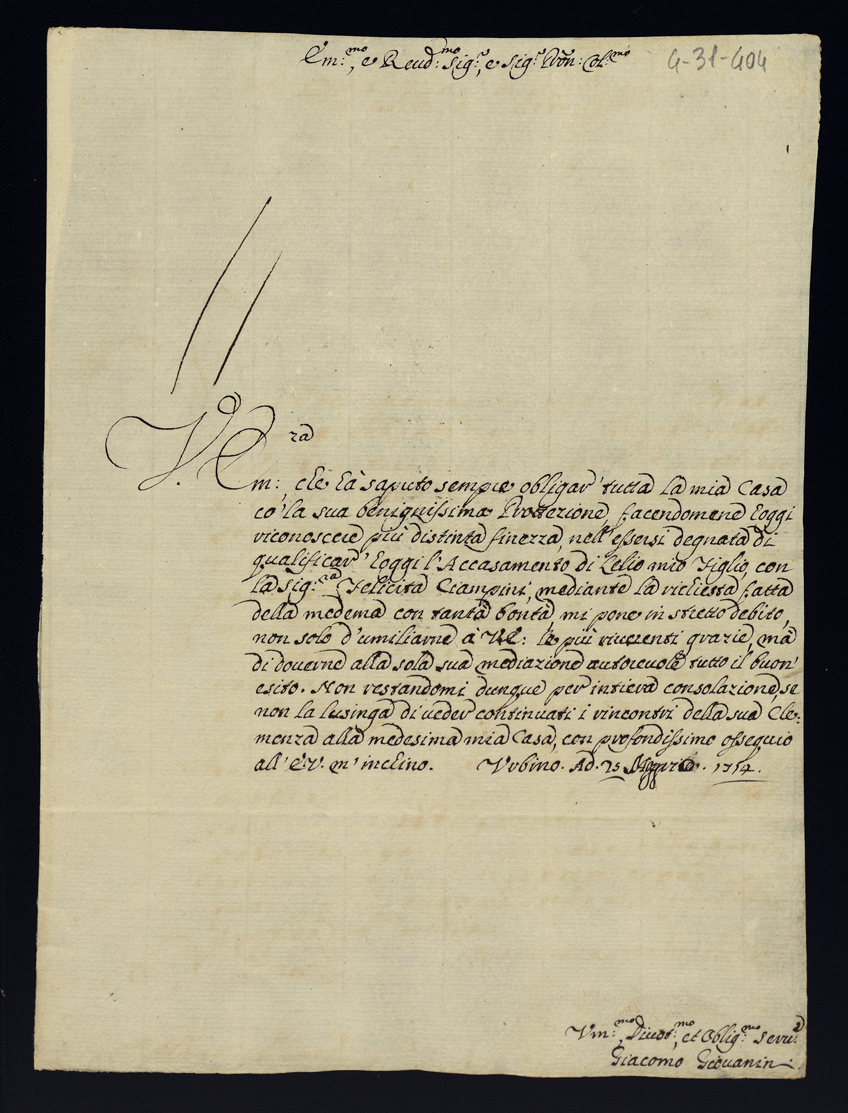 Em:mo, e Reud:mo Sig:r, e Sig:r Pron: Col:mo
4-31-404
V. E ra
Em: che hà saputo sempre obligar' tutta la mia Casa
co' la sua benignissima Protezione, facendomene hoggi
riconoscere più distinta finezza, nell'essersi degnata di
qualificar' hoggi l'Accasamento di Lelio mio Figlio, con
la Sig:ra Felicita Ciampini, mediante la richiesta fatta
della medema con tanta bontà, mi pone in stretto debito,
non solo d'umiliarne à VE: le più riuerenti grazie, mà
di douerne alla sola sua mediazione autoreuole tutto il buon'
esito. Non restandomi dunque per intiera consolazione, se
non la lusinga di ueder continuati i rincontri della sua Cle:
menza alla medesima mia Casa, con profondissimo ossequio
all'E.V. m'inchino. Vrbino. Ad. 25 1714.
Vm:mo, Diuot:mo, et Oblig:mo Seru:
Giacomo